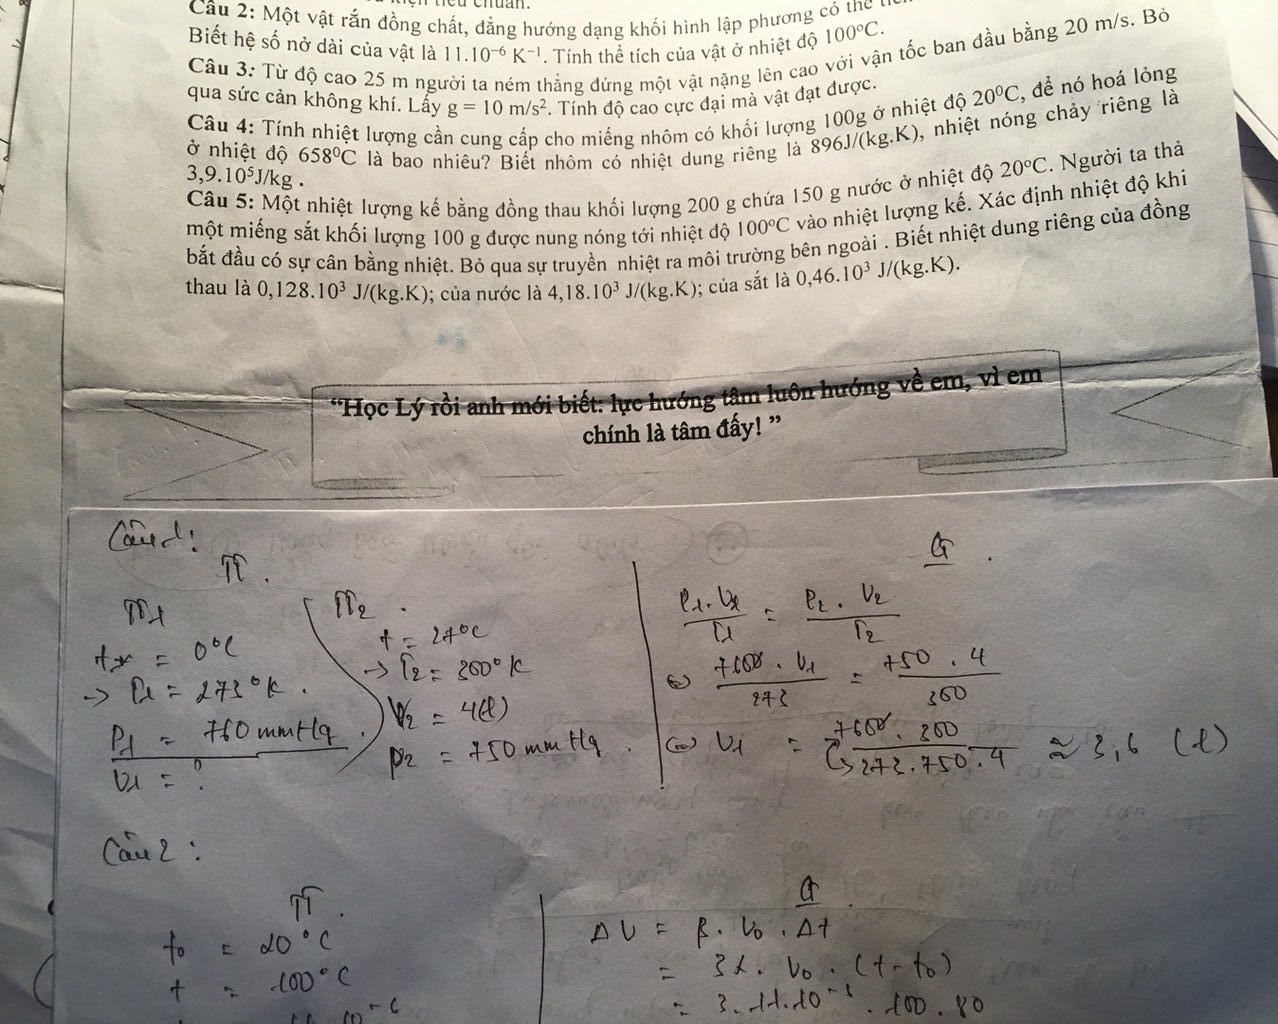 kiện tiêu chuẩn.
Câu 2: Một vật rắn đồng chất, đẳng hướng dạng khối hình lập phương có thể
Biết hệ số nở dài của vật là 11.10⁻⁶ K⁻¹. Tính thể tích của vật ở nhiệt độ 100⁰C.
Câu 3: Từ độ cao 25 m người ta ném thẳng đứng một vật nặng lên cao với vận tốc ban đầu bằng 20 m/s. Bỏ
qua sức cản không khí. Lấy g = 10 m/s². Tính độ cao cực đại mà vật đạt được.
Câu 4: Tính nhiệt lượng cần cung cấp cho miếng nhôm có khối lượng 100g ở nhiệt độ 20⁰C, để nó hoá lỏng
ở nhiệt độ 658⁰C là bao nhiêu? Biết nhôm có nhiệt dung riêng là 896J/(kg.K), nhiệt nóng chảy riêng là
3,9.10⁵J/kg .
Câu 5: Một nhiệt lượng kế bằng đồng thau khối lượng 200 g chứa 150 g nước ở nhiệt độ 20⁰C. Người ta thả
một miếng sắt khối lượng 100 g được nung nóng tới nhiệt độ 100⁰C vào nhiệt lượng kế. Xác định nhiệt độ khi
bắt đầu có sự cân bằng nhiệt. Bỏ qua sự truyền nhiệt ra môi trường bên ngoài . Biết nhiệt dung riêng của đồng
thau là 0,128.10³ J/(kg.K); của nước là 4,18.10³ J/(kg.K); của sắt là 0,46.10³ J/(kg.K).
“Học Lý rồi anh mới biết: lực hướng tâm luôn hướng về em, vì em
chính là tâm đấy! ”
Câu 1:
TT.
G .
TT1
TT2 .
t = 0°C
t = 27°C
→ T1 = 273°K.
→ T2 = 300°K
P1 = 760 mmHg
V2 = 4(l)
V1 = ?
P2 = 750 mmHg .
P1.V1 / T1 = P2.V2 / T2
⇔ 760 . V1 / 273 = 750 . 4 / 300
⇔ V1 = 760 . 300 / 273.750.4 ≈ 3,6 (l)
Câu 2:
TT.
G
t₀ = 20°C
t = 100°C
ΔV = β. V₀ . Δt
= 3α. V₀ . (t - t₀)
= 3.11.10 . 100 . 80